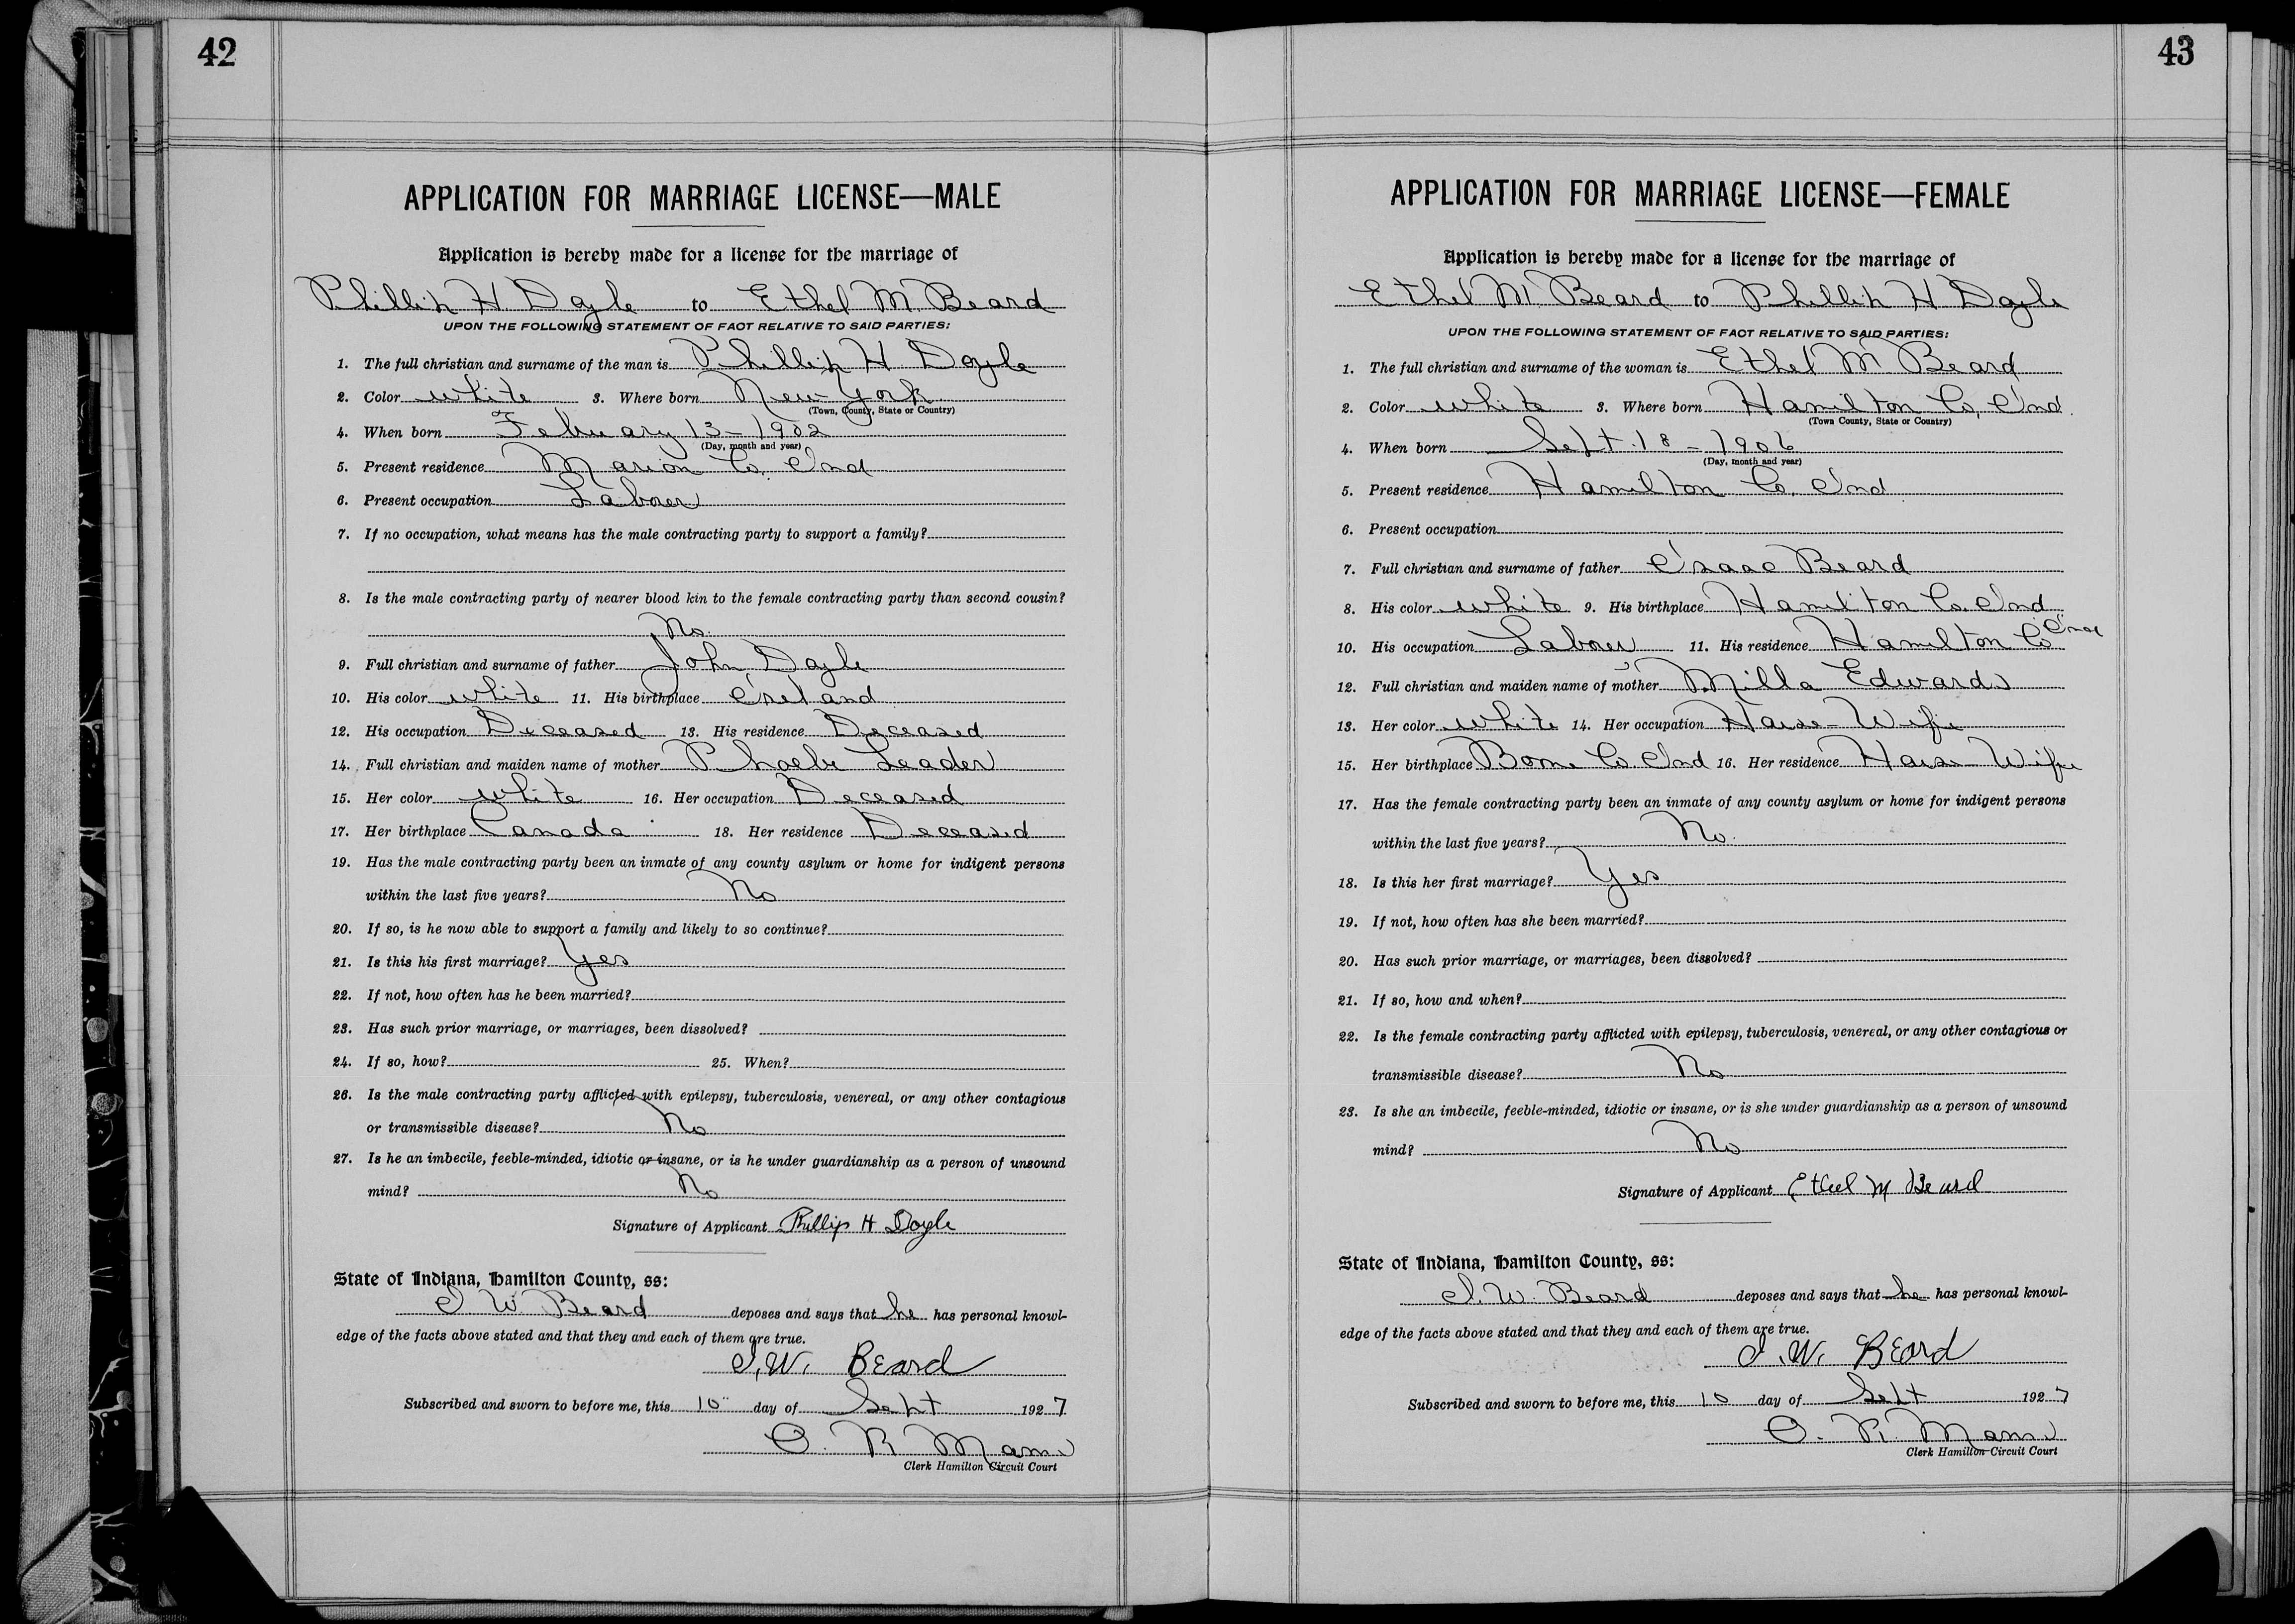 42
APPLICATION FOR MARRIAGE LICENSE—MALE
Application is hereby made for a license for the marriage of
Phillip H Doyle to Ethel M. Beard
UPON THE FOLLOWING STATEMENT OF FACT RELATIVE TO SAID PARTIES:
1. The full christian and surname of the man is Phillip H Doyle
2. Color white 3. Where born New York
(Town, County, State or Country)
4. When born February 13 - 1902
(Day, month and year)
5. Present residence Marion Co. Ind
6. Present occupation Laborer
7. If no occupation, what means has the male contracting party to support a family?
8. Is the male contracting party of nearer blood kin to the female contracting party than second cousin?
No.
9. Full christian and surname of father John Doyle
10. His color white 11. His birthplace Ireland
12. His occupation Deceased 13. His residence Deceased
14. Full christian and maiden name of mother Phoebe Leader
15. Her color white 16. Her occupation Deceased
17. Her birthplace Canada 18. Her residence Deceased
19. Has the male contracting party been an inmate of any county asylum or home for indigent persons
within the last five years? No
20. If so, is he now able to support a family and likely to so continue?
21. Is this his first marriage? Yes
22. If not, how often has he been married?
23. Has such prior marriage, or marriages, been dissolved?
24. If so, how? 25. When?
26. Is the male contracting party afflicted with epilepsy, tuberculosis, venereal, or any other contagious
or transmissible disease? No
27. Is he an imbecile, feeble-minded, idiotic or insane, or is he under guardianship as a person of unsound
mind? No
Signature of Applicant Phillip H Doyle
State of Indiana, Hamilton County, ss:
I W. Beard deposes and says that he has personal knowl-
edge of the facts above stated and that they and each of them are true.
I. W. Beard
Subscribed and sworn to before me, this 10" day of Sept 1927
C. R. Mann
Clerk Hamilton Circuit Court
43
APPLICATION FOR MARRIAGE LICENSE—FEMALE
Application is hereby made for a license for the marriage of
Ethel M. Beard to Phillip H Doyle
UPON THE FOLLOWING STATEMENT OF FACT RELATIVE TO SAID PARTIES:
1. The full christian and surname of the woman is Ethel M Beard
2. Color white 3. Where born Hamilton Co, Ind.
(Town County, State or Country)
4. When born Sept. 18 - 1906
(Day, month and year)
5. Present residence Hamilton Co. Ind
6. Present occupation
7. Full christian and surname of father Isaac Beard
8. His color white 9. His birthplace Hamilton Co. Ind
10. His occupation Laborer 11. His residence Hamilton Co Ind
12. Full christian and maiden name of mother Milla Edwards
13. Her color white 14. Her occupation House-Wife
15. Her birthplace Boone Co. Ind 16. Her residence House-Wife
17. Has the female contracting party been an inmate of any county asylum or home for indigent persons
within the last five years? No.
18. Is this her first marriage? Yes
19. If not, how often has she been married?
20. Has such prior marriage, or marriages, been dissolved?
21. If so, how and when?
22. Is the female contracting party afflicted with epilepsy, tuberculosis, venereal, or any other contagious or
transmissible disease? No
23. Is she an imbecile, feeble-minded, idiotic or insane, or is she under guardianship as a person of unsound
mind? No
Signature of Applicant Ethel M Beard
State of Indiana, Hamilton County, ss:
I. W. Beard deposes and says that he has personal knowl-
edge of the facts above stated and that they and each of them are true.
I. W. Beard
Subscribed and sworn to before me, this 10 day of Sept 1927
C. R. Mann
Clerk Hamilton Circuit Court